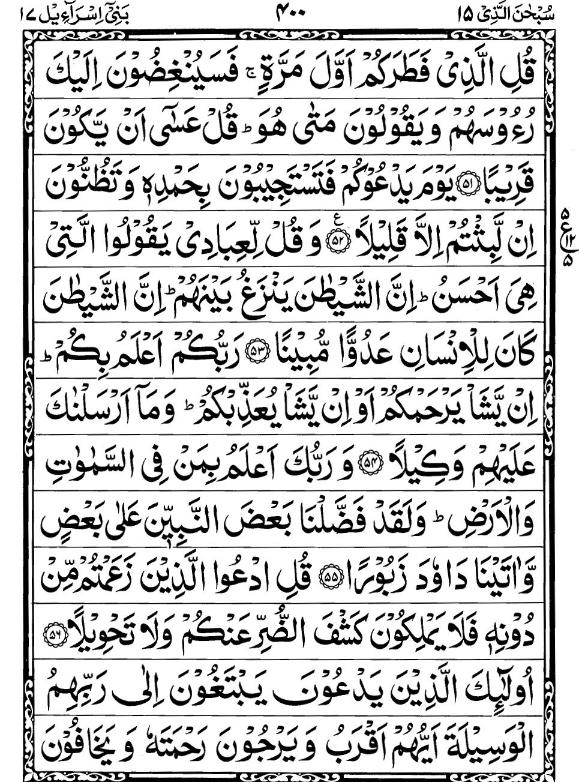 سُبْحٰنَ الَّذِىْ ١٥
٤٠٠
بَنِىْٓ اِسْرَآءِيْل ١٧
قُلِ الَّذِىْ فَطَرَكُمْ اَوَّلَ مَرَّةٍ ۚ فَسَيُنْغِضُوْنَ اِلَيْكَ
رُءُوْسَهُمْ وَيَقُوْلُوْنَ مَتٰى هُوَ ؕ قُلْ عَسٰٓى اَنْ يَّكُوْنَ
قَرِيْبًا ۝۵۱ يَوْمَ يَدْعُوْكُمْ فَتَسْتَجِيْبُوْنَ بِحَمْدِهٖ وَتَظُنُّوْنَ
اِنْ لَّبِثْتُمْ اِلَّا قَلِيْلًا ۝۵۲ ع وَقُلْ لِّعِبَادِىْ يَقُوْلُوا الَّتِىْ
۵ ع ۱۲ ۵
هِىَ اَحْسَنُ ؕ اِنَّ الشَّيْطٰنَ يَنْزَغُ بَيْنَهُمْ ؕ اِنَّ الشَّيْطٰنَ
كَانَ لِلْاِنْسَانِ عَدُوًّا مُّبِيْنًا ۝۵۳ رَبُّكُمْ اَعْلَمُ بِكُمْ ؕ
اِنْ يَّشَاْ يَرْحَمْكُمْ اَوْ اِنْ يَّشَاْ يُعَذِّبْكُمْ ؕ وَمَاۤ اَرْسَلْنٰكَ
عَلَيْهِمْ وَكِيْلًا ۝۵۴ وَرَبُّكَ اَعْلَمُ بِمَنْ فِى السَّمٰوٰتِ
وَالْاَرْضِ ؕ وَلَقَدْ فَضَّلْنَا بَعْضَ النَّبِيّٖنَ عَلٰى بَعْضٍ
وَّاٰتَيْنَا دَاوٗدَ زَبُوْرًا ۝۵۵ قُلِ ادْعُوا الَّذِيْنَ زَعَمْتُمْ مِّنْ
دُوْنِهٖ فَلَا يَمْلِكُوْنَ كَشْفَ الضُّرِّ عَنْكُمْ وَلَا تَحْوِيْلًا ۝۵۶
اُولٰٓئِكَ الَّذِيْنَ يَدْعُوْنَ يَبْتَغُوْنَ اِلٰى رَبِّهِمُ
الْوَسِيْلَةَ اَيُّهُمْ اَقْرَبُ وَيَرْجُوْنَ رَحْمَتَهٗ وَيَخَافُوْنَ